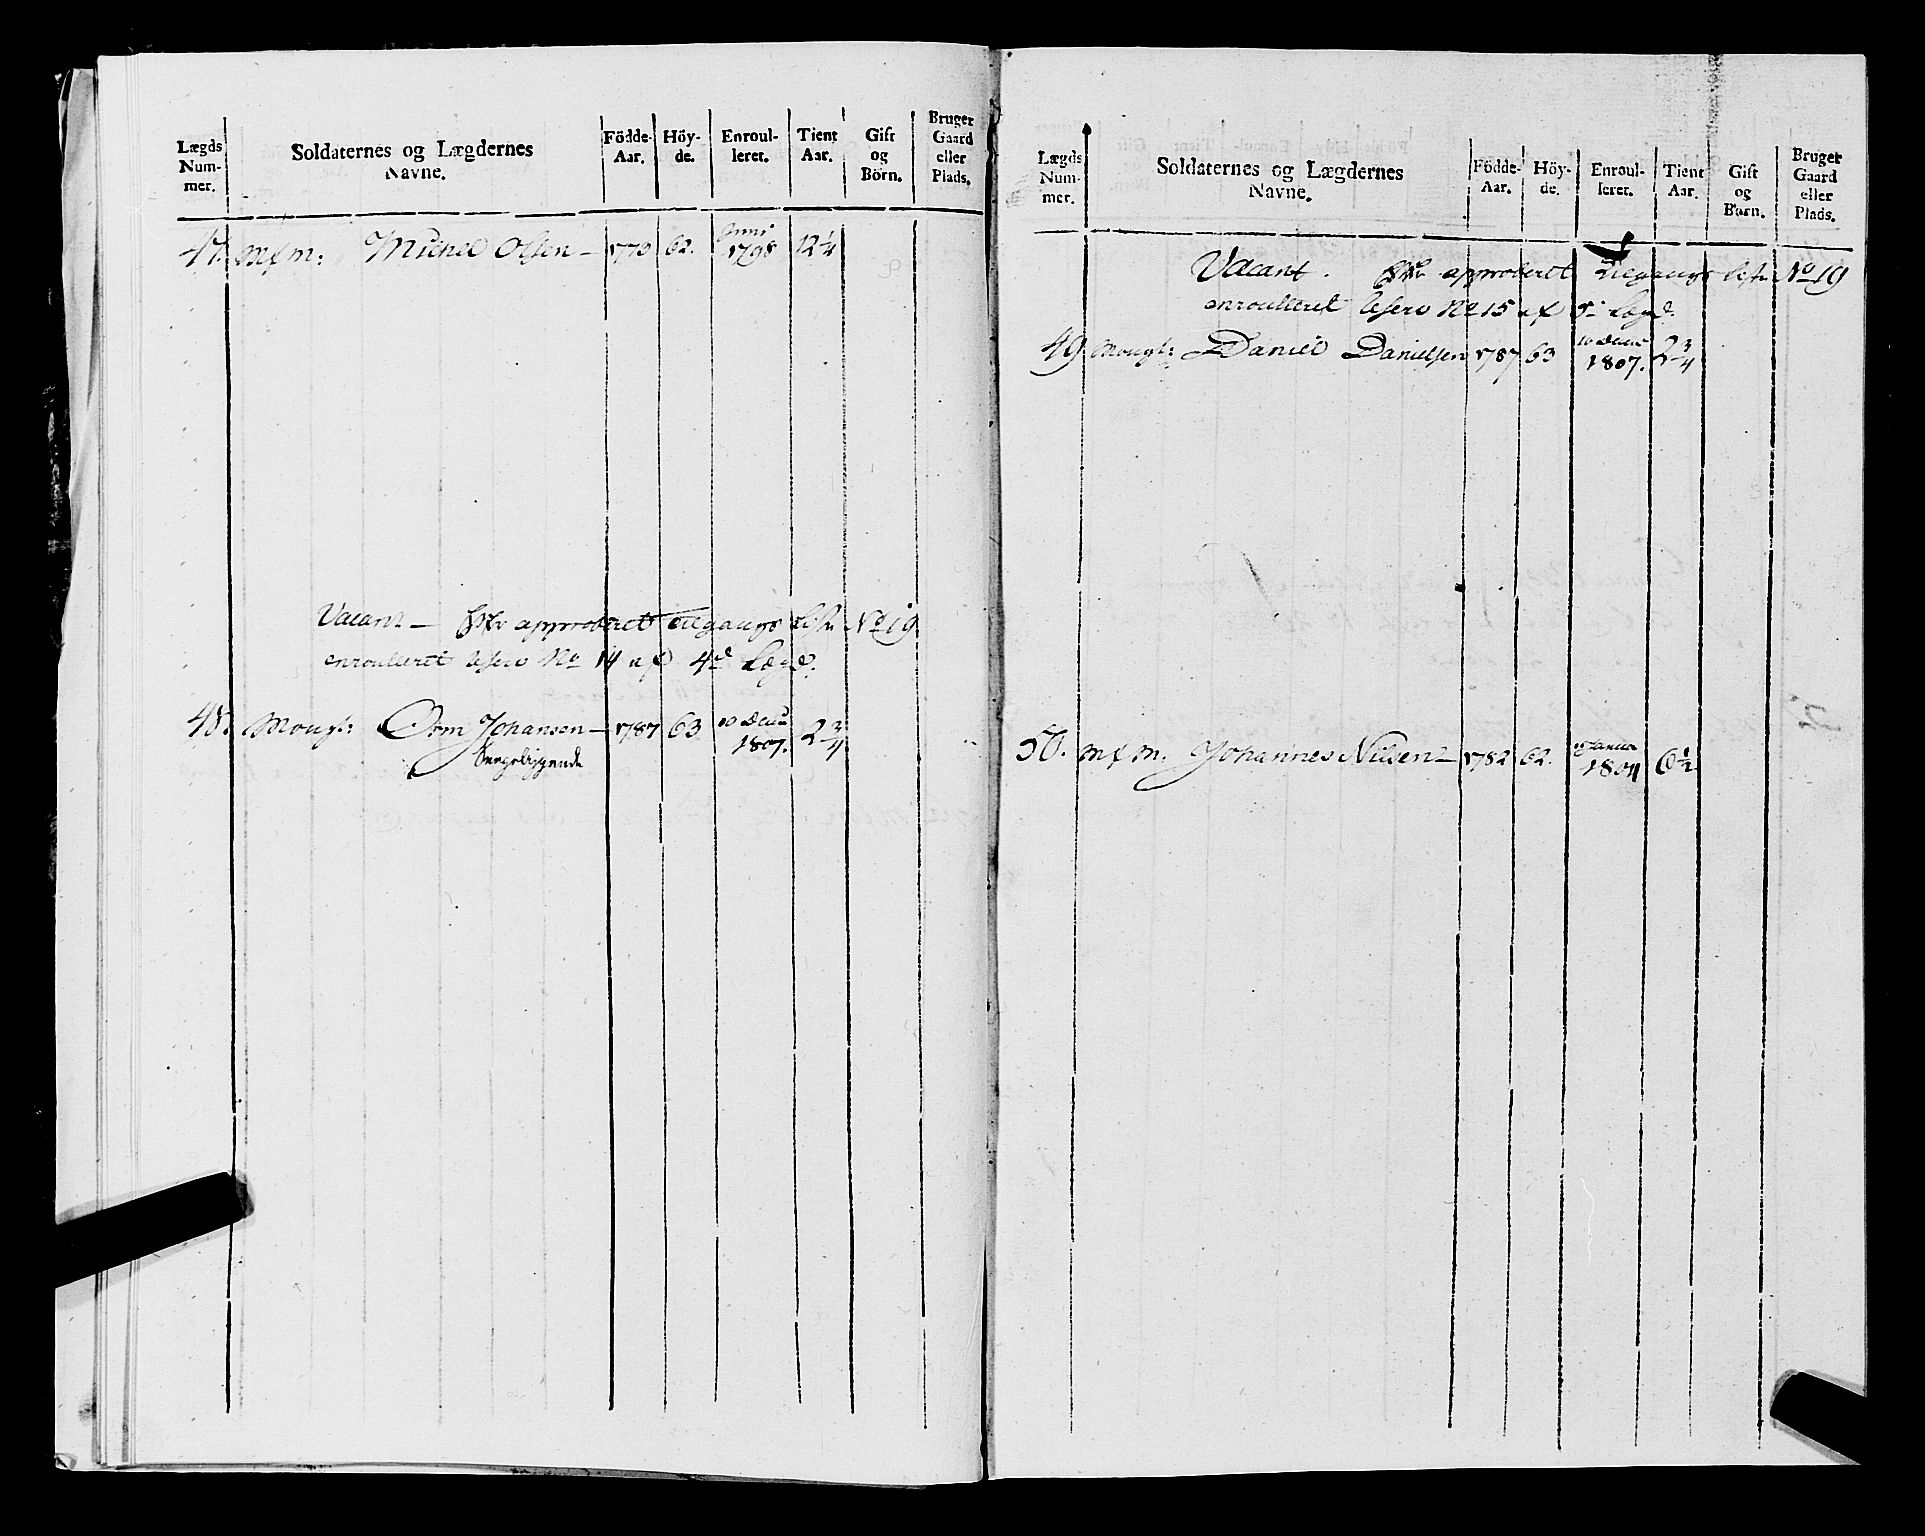 Lægds Num- mer.
Soldaternes og Lægdernes Navne.
Födde- Aar.
Höy- de.
Enroul- leret.
Tient Aar.
Gift og Börn.
Bruger Gaard eller Plads.
47. Michel Olsen – 1773 62. Junii 1798 12 1/4
Vacant – approberet Tilgangs Liste No 19.
enroulleret No 14 af 4d Lægd.
48. Mougt: Orm Johansen – 1787 63 10 Decbr 1807. 2 3/4
Lægds Num- mer.
Soldaternes og Lægdernes Navne.
Födde- Aar.
Höy- de.
Enroul- leret.
Tient Aar.
Gift og Börn.
Bruger Gaard eller Plads.
Vacant. approberet Tilgangs Liste No 19
enroulleret No 15 af 5. Lægd.
49. Mougt: Daniel Danielsen 1787 63 10 Decbr 1807. 2 3/4
50. Johannes Nilsen – 1782 62. 1804 6 1/2